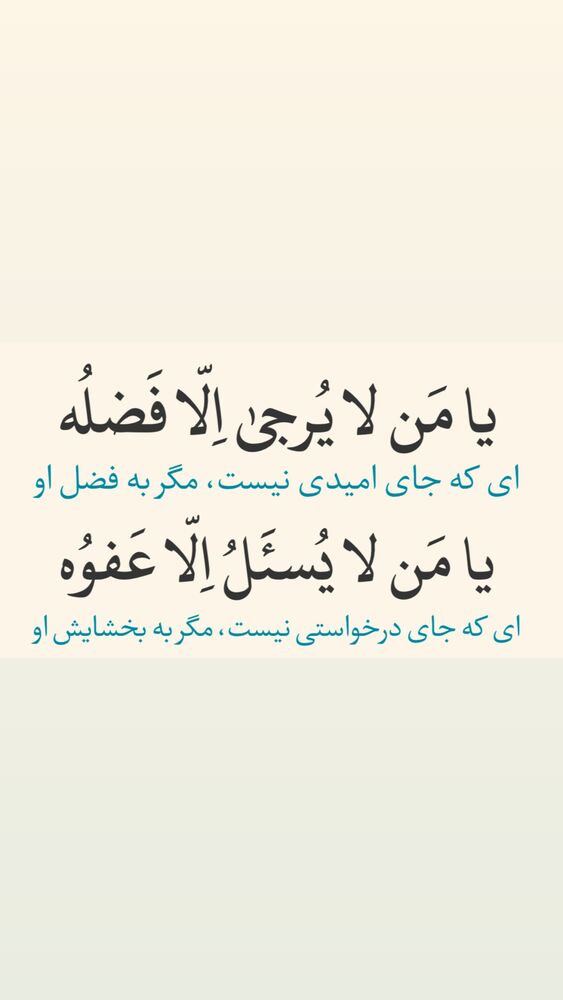 یا مَن لا یُرجیٰ اِلّا فَضلُه
ای که جای امیدی نیست، مگر به فضل او
یا مَن لا یُسئَلُ اِلّا عَفوُه
ای که جای درخواستی نیست، مگر به بخشایش او